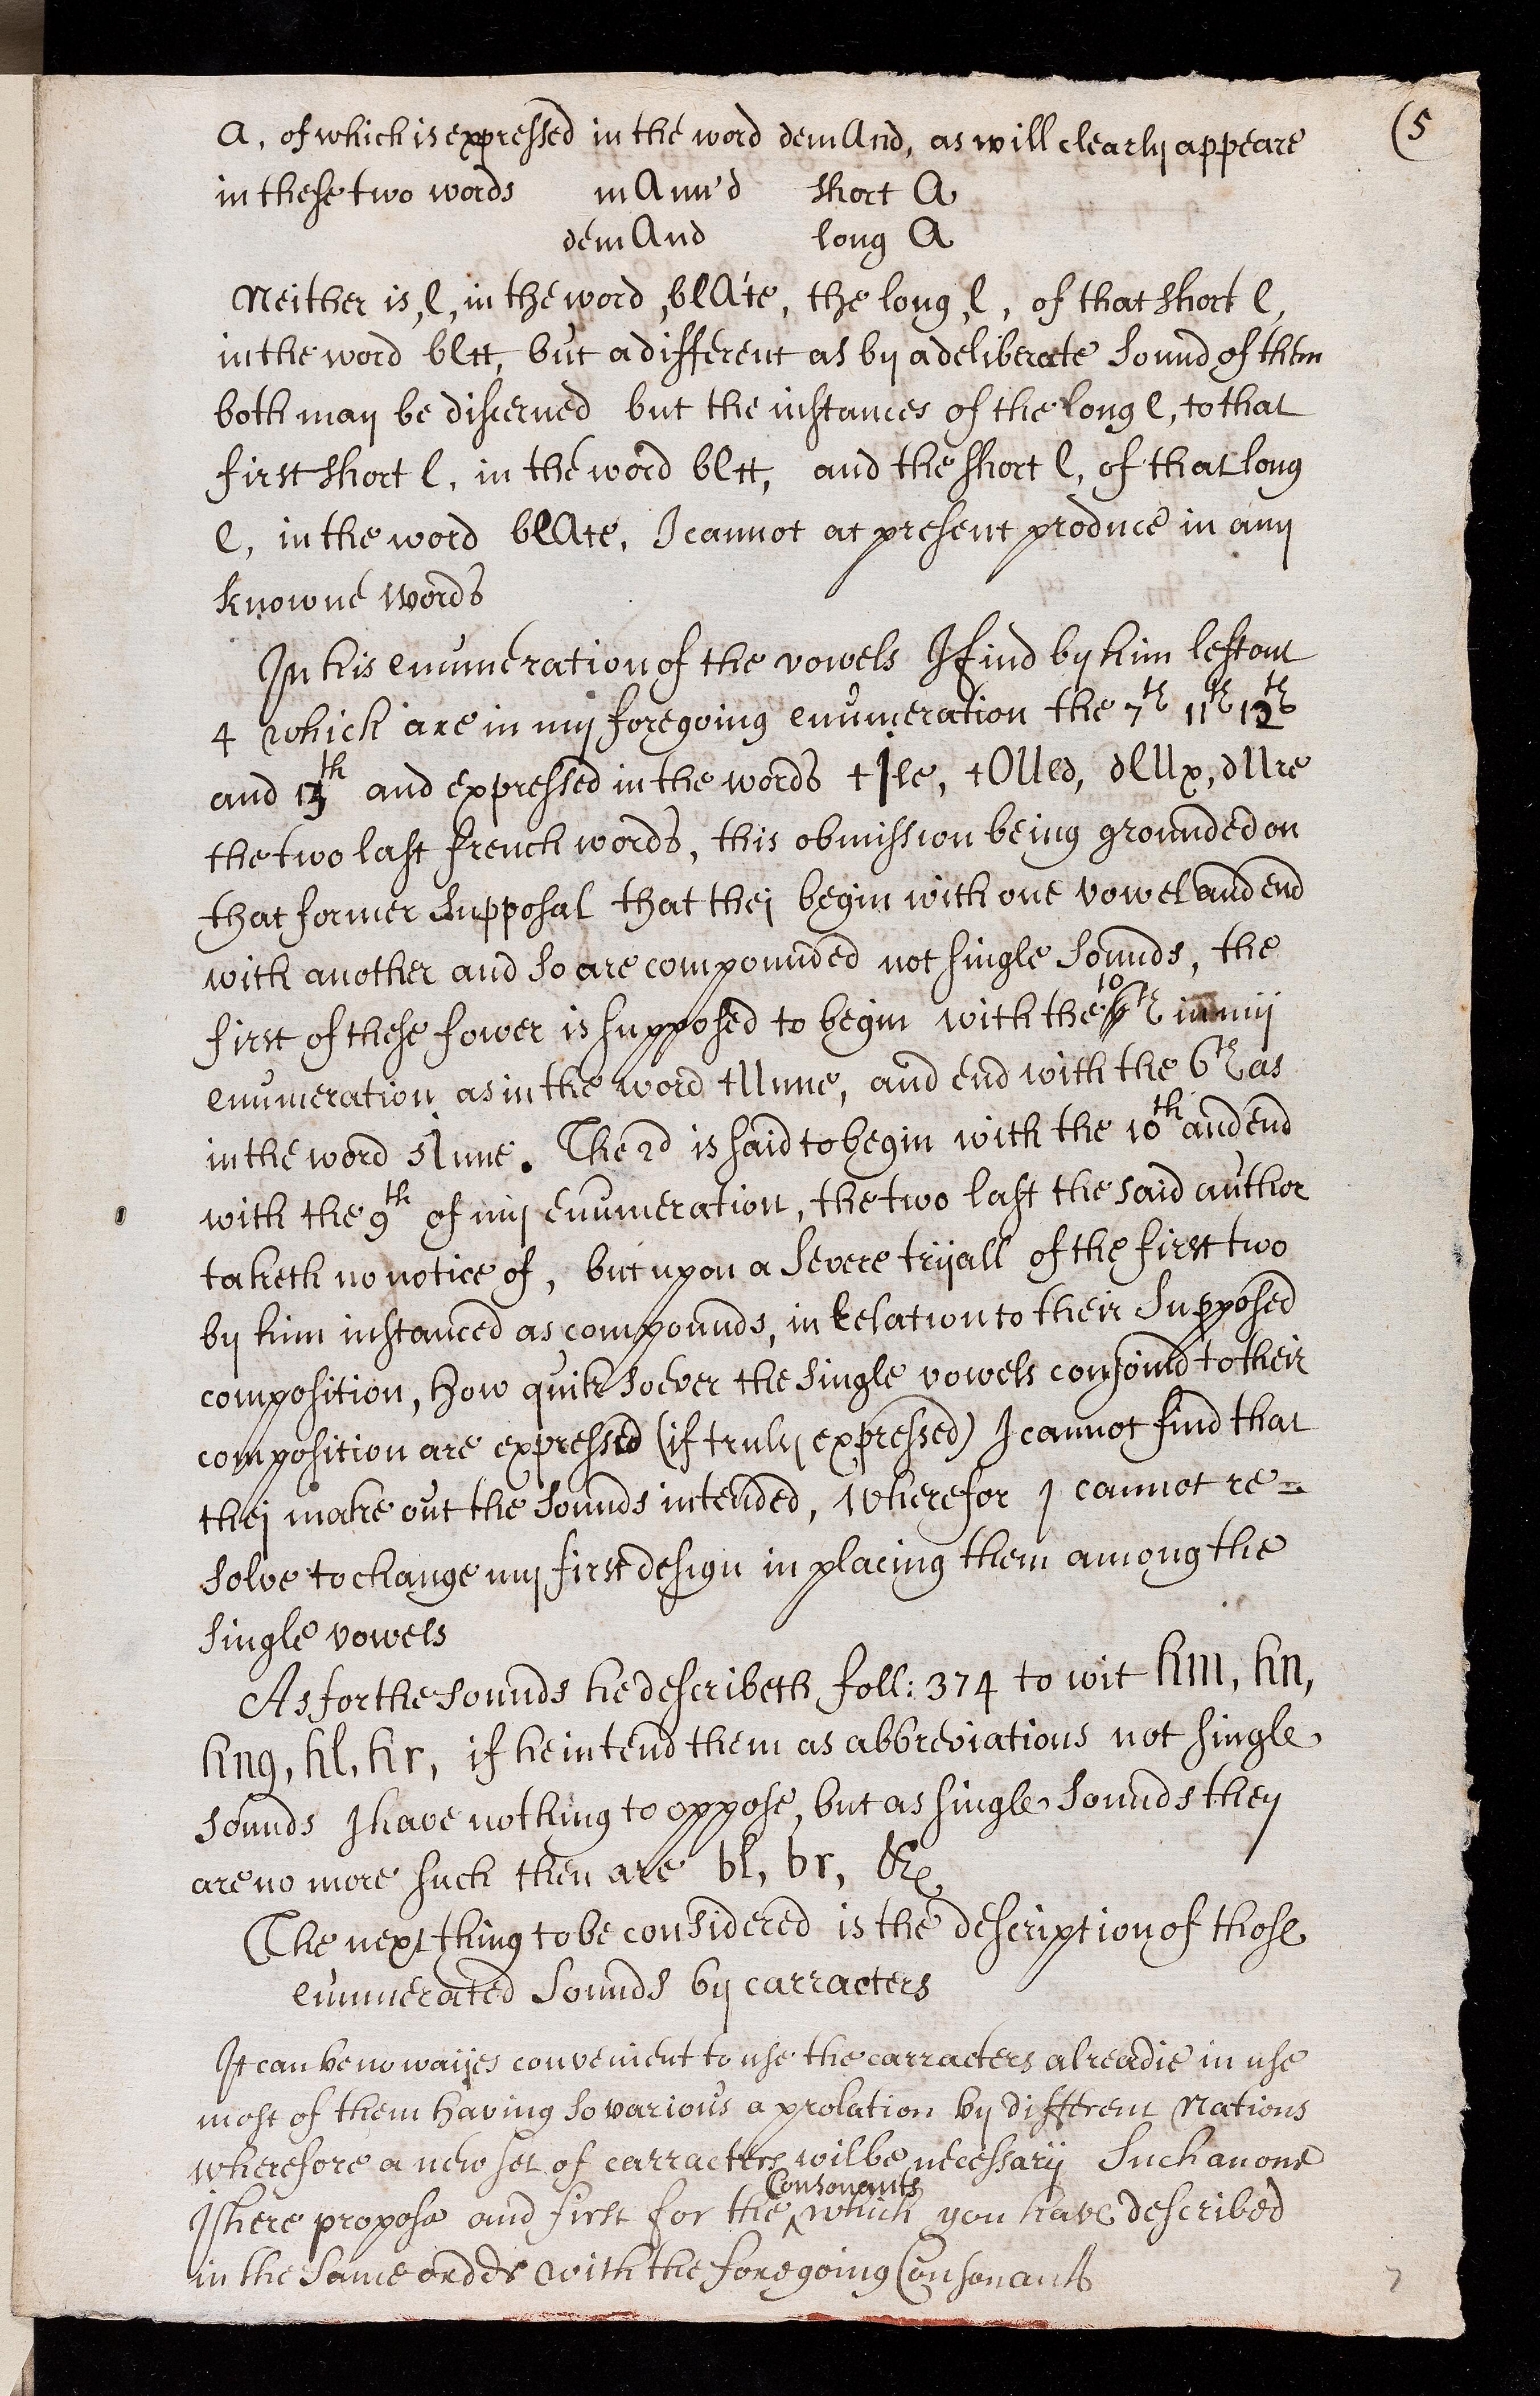 (5
A, of which is expressed in the word demAnd, as will clearly appeare
in these two words mAnn'd short A
demAnd long A
Neither is, e, in the word, blAte, the long, e, of that short e,
in the word blett, but a different as by a deliberate sound of them
both may be discerned but the instances of the long e, to that
first short e, in the word blett, and the short e, of that long
e, in the word blAte, I cannot at present produce in any
knowne words
In his enumeration of the vowels I find by him left out
4 which are in my foregoing enumeration the 7th 11th 12th
and 13th and expressed in the words tIle, tOUld, dEUx, dUre
the two last french words, this obmission being grounded on
that former supposal that thei begin with one vowel and end
with another and so are compounded not single sounds, the
first of these fower is supposed to begin with the 10th in my
enumeration as in the word tUnne, and end with the 6th as
in the word sInne. The 2d is said to begin with the 10th and end
with the 9th of my enumeration, the two last the said author
taketh no notice of, but upon a severe tryall of the first two
by him instanced as compounds, in relation to their supposed
composition, how quik soever the single vowels conjoind to their
composition are expressed (if truly expressed) I cannot find that
thei make out the sounds intended, wherefor I cannot re=
solve to change my first design in placing them among the
single vowels
As for the sounds he describeth foll: 374 to wit hm, hn,
hng, hl, hr, if he intend them as abbreviations not single
sounds I have nothing to oppose, but as single sounds they
are no more such then are bl, br, &c
The next thing to be considered is the description of those
enumerated sounds by carracters
It can be no wayes convenient to use the carracters alreadie in use
most of them having so various a prolation by different Nations
wherefore a new set of carracters wil be necessary such an one
I here propose and first for the Consonants which you have described
in the same order with the foregoing Consonants
7